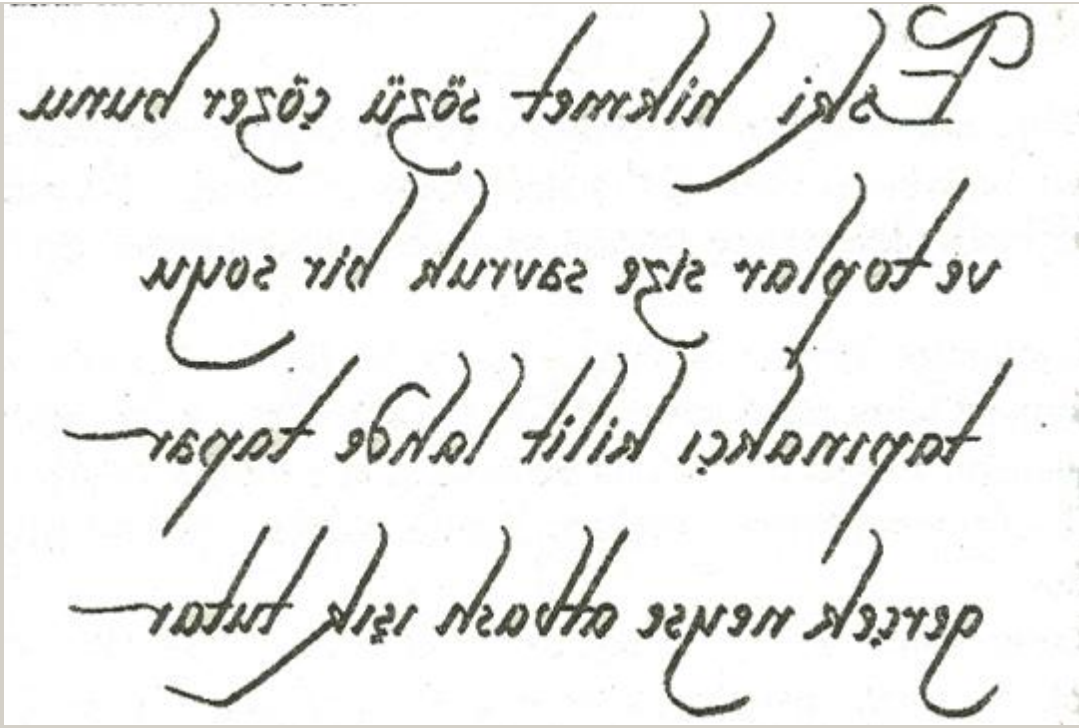 Eski hikmet sözü çözer bunu
ve toplar size savruk bir soyu
tapınakçı kilit lahde tapar
gerçek neyse atbash ışık tutar